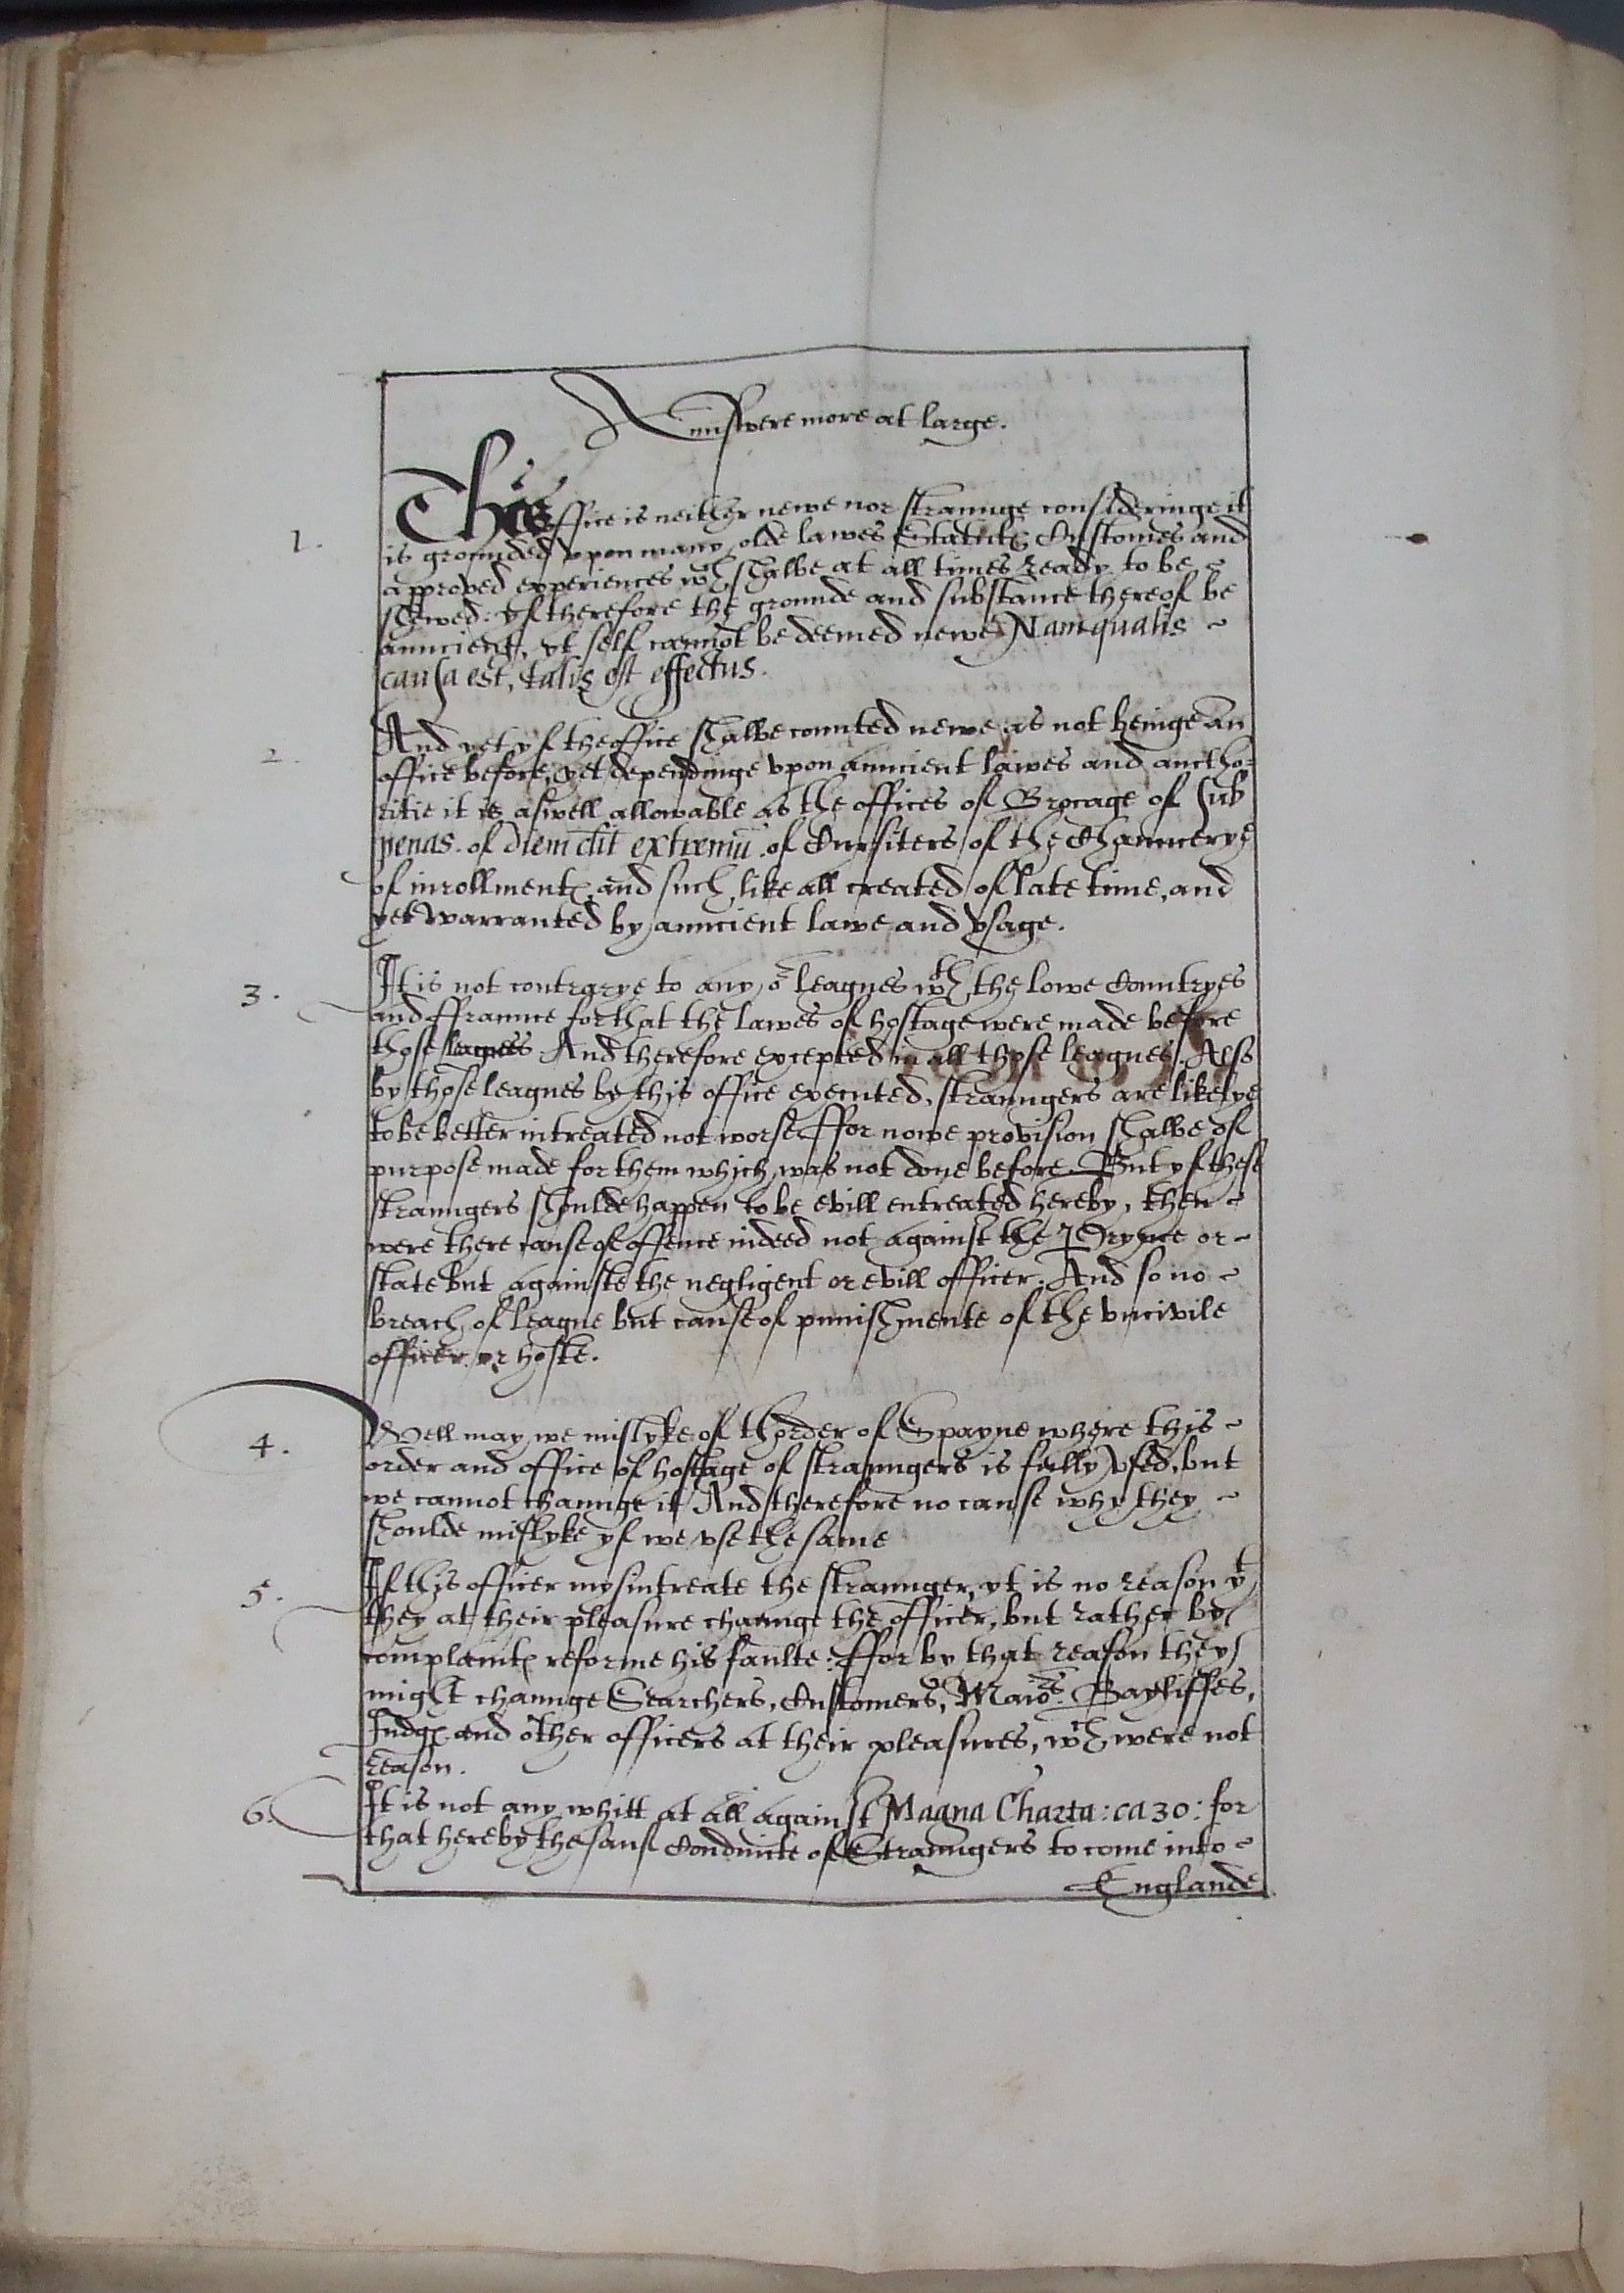 Aunswere more at large.
1. This office is neither newe nor straunge consideringe it
is grounded vpon many olde lawes Statutes Customes and
approved experiences wch shalbe at all times ready to be
shewed: yf therefore the grounde and substance thereof be
auncient, yt self cannot be deemed newe Nam qualis
causa est, talis est effectus.
2. And yet yf the office shalbe counted newe as not beinge an
office before, yet dependinge vpon auncient lawes and auctho=
ritie it is aswell allowable as the offices of Brocage of sub
penas. of diem clit extremū. of Cursiters of the Chauncerye
of inrollmentes and such like all created of late time, and
yet warranted by auncient lawe and vsage.
3. It is not contrarye to any or leagues wth the lowe Countryes
and Fraunce for that the lawes of hostage were made before
those leagues And therefore excepted in all those leagues. Also
by those leagues by this office executed, straungers are likelye
to be better intreated not worse. ffor nowe provision shalbe of
purpose made for them which was not done before. But yf these
straungers shoulde happen to be evill entreated hereby, then
were there cause of offence indeed not against the Prynce or
state but againste the negligent or evill officer. And so no
breach of league but cause of punishmente of the vncivile
officer or hoste.
4. Well may we mislyke of thorder of Spayne where this
order and office of hostage of straungers is fully vsed, but
we cannot chaunge it And therefore no cause why they
shoulde mislyke yf we vse the same
5. If this officer mysintreate the straunger, yt is no reason yt
they at their pleasure chaunge the officer, but rather by
complaintes reforme his faulte: ffor by that reason they
might chaunge Searchers, Customers, Maiors. Bayliffes,
Judges and other officers at their pleasures, wch were not
reason.
6. It is not any whitt at all against Magna Charta: ca 30: for
that hereby the sauf Conducte of Straungers to come into
Englande